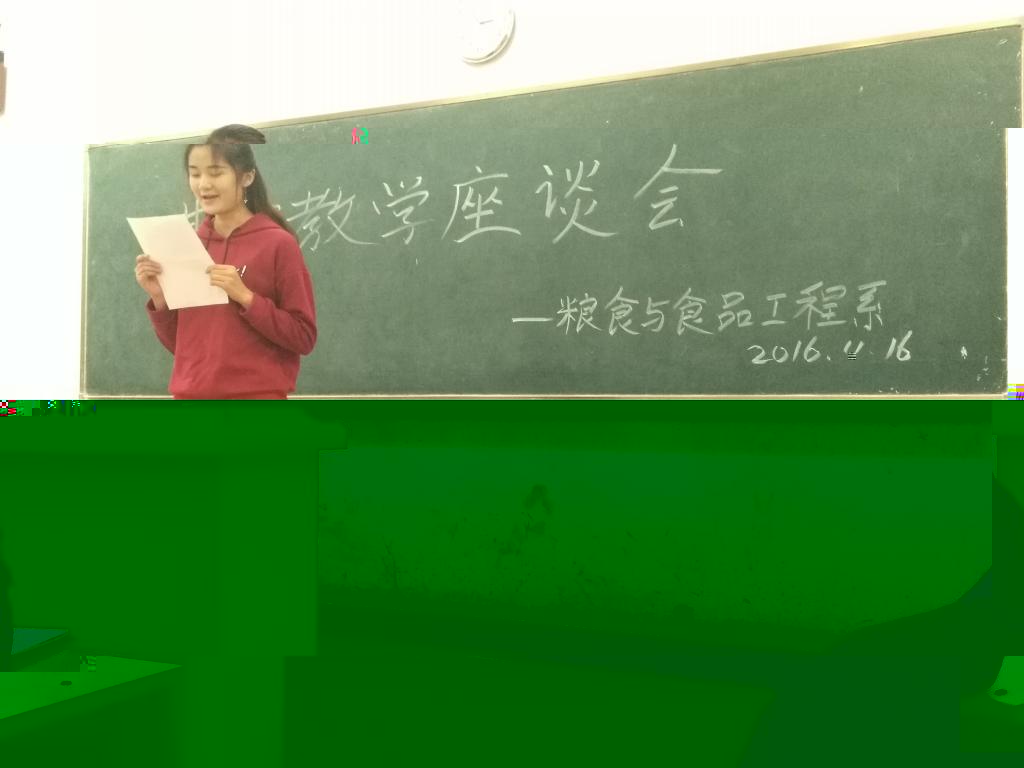 教学座谈会
—粮食与食品工程系
2016.4.16